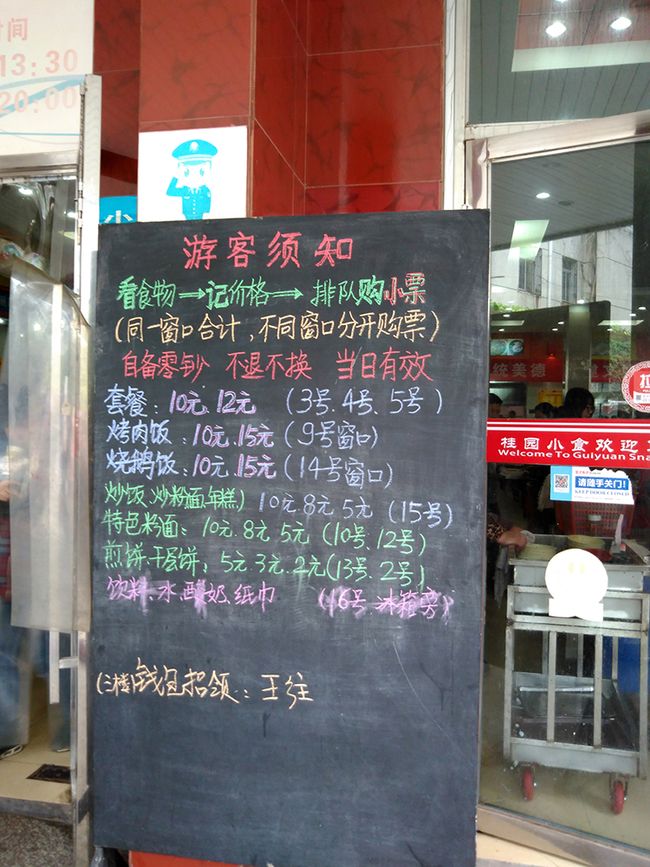 时间
13:30
20:00
游客须知
看食物→记价格→排队购小票
(同一窗口合计,不同窗口分开购票)
自备零钞 不退不换 当日有效
套餐:10元.12元 (3号.4号.5号)
烤肉饭:10元.15元(9号窗口)
烧鹅饭:10元.15元(14号窗口)
炒饭.炒粉面.年糕) 10元.8元.5元 (15号)
特色粉面:10元.8元.5元(10号.12号)
煎饼.千层饼:5元.3元.2元(13号.2号)
饮料.水.酸奶.纸巾 (16号.冰箱旁)
(二楼)钱包招领:王往
统美德
桂园小食欢迎
Welcome To Guiyuan Sna
请随手关门!
KEEP DOOR CLOSED